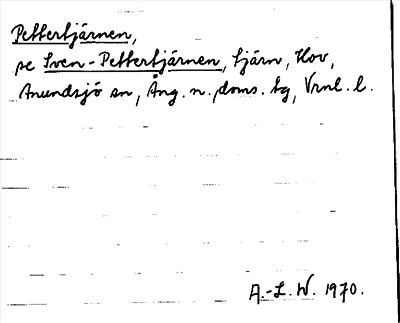 Pettertjärnen,
se Sven-Pettertjärnen, tjärn, Hov,
Anundsjö sn, Ång. n. doms. tg, Vrnl. l.
A.-L. W. 1970.